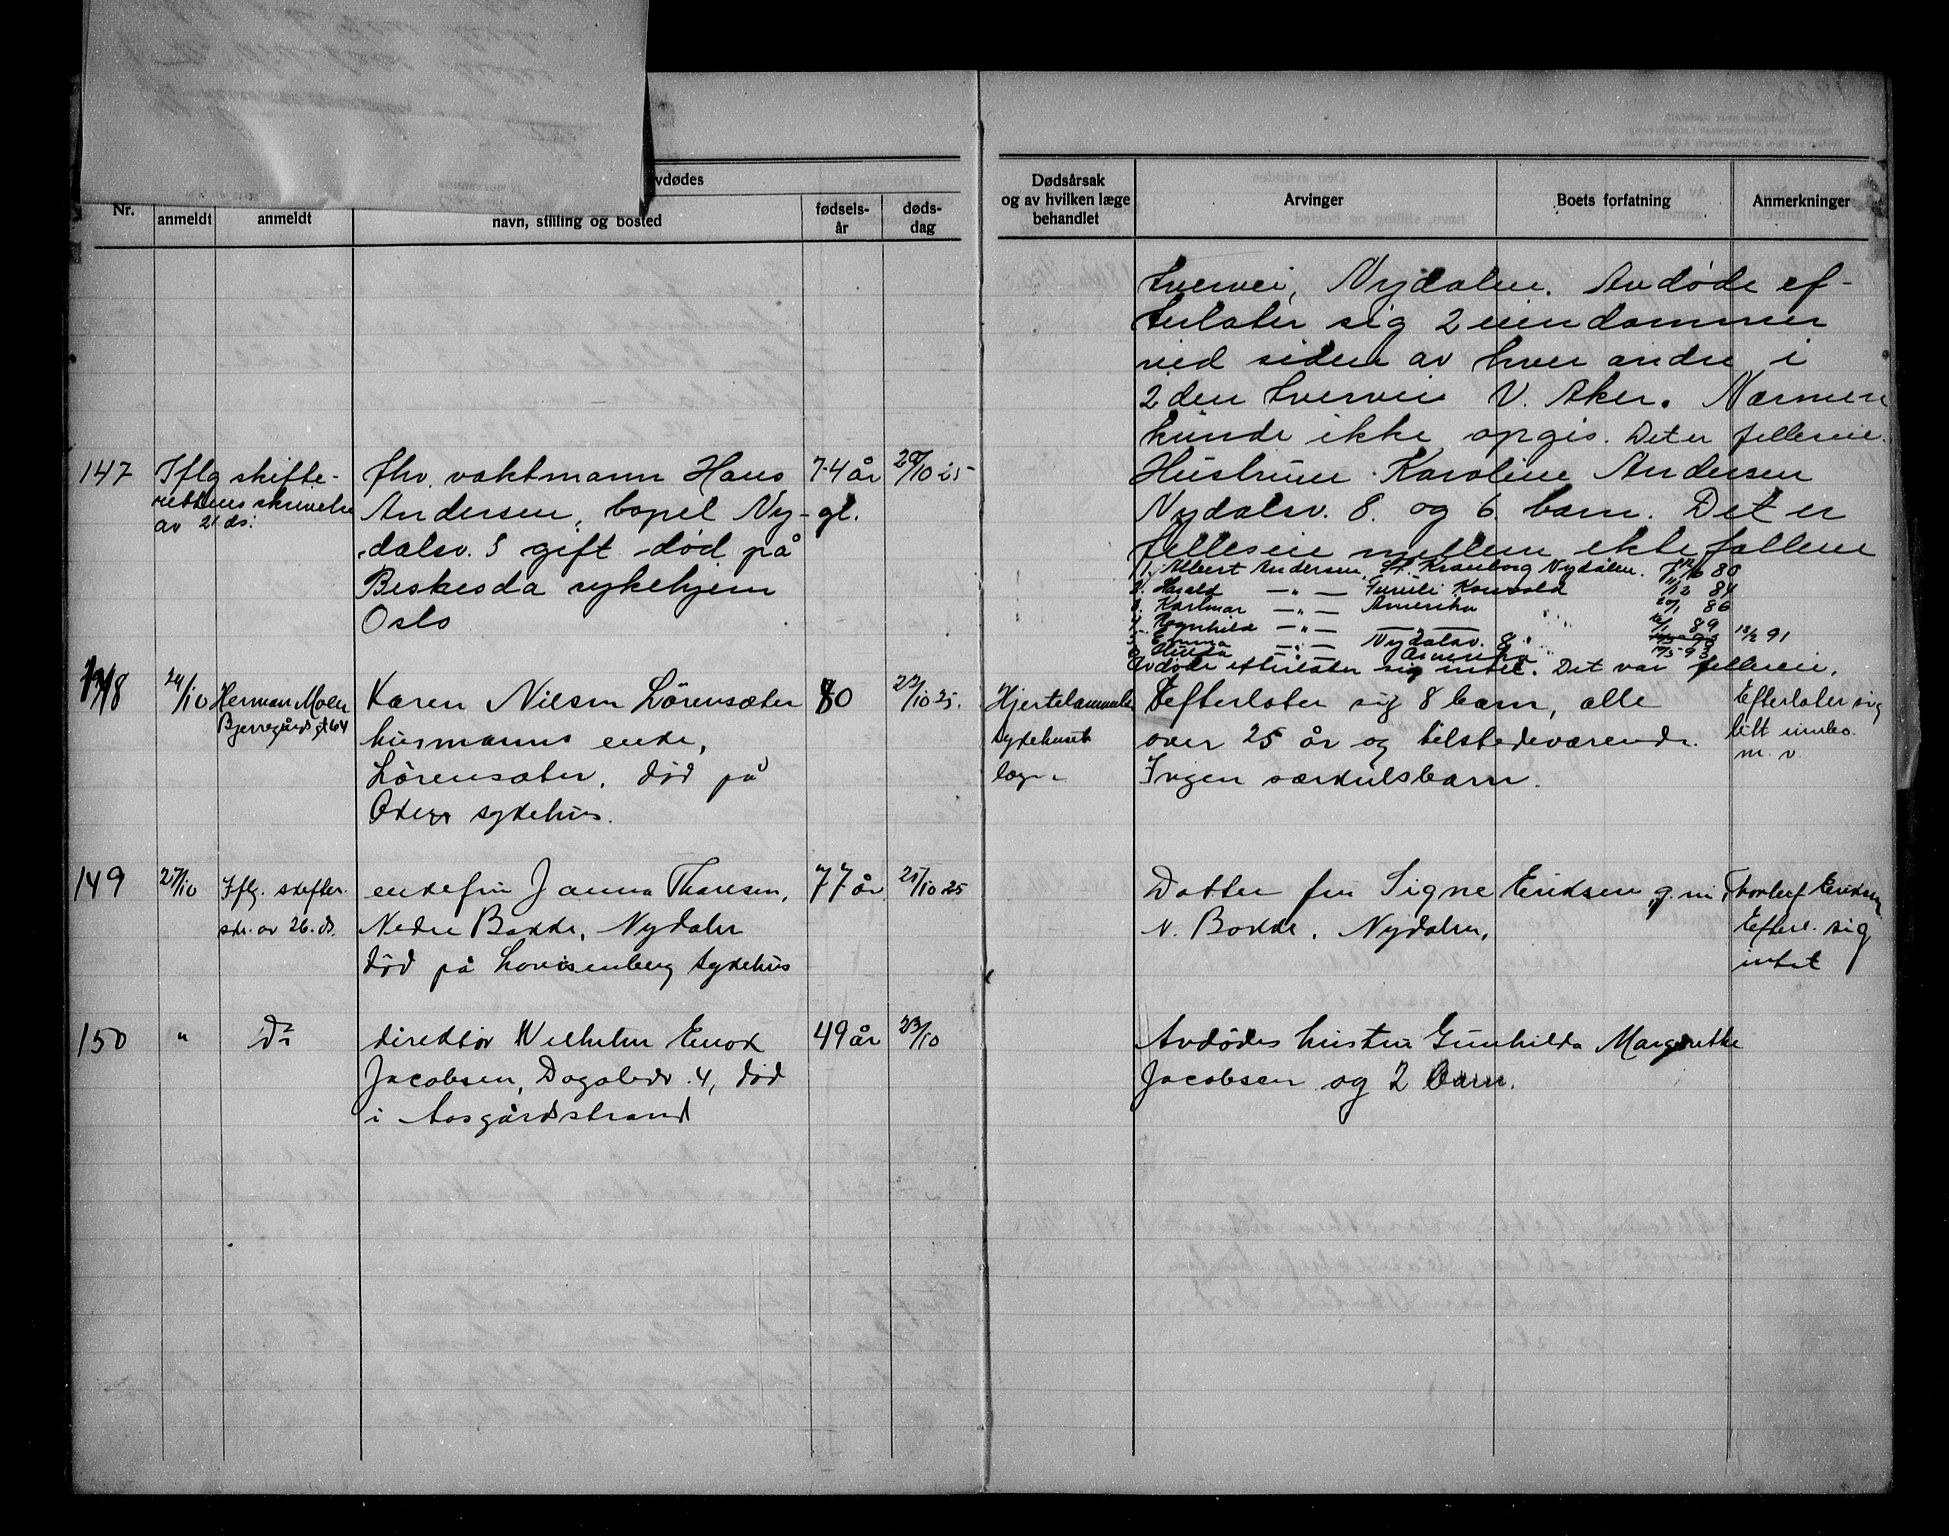 avdødes
Nr.
anmeldt
anmeldt
navn, stilling og bosted
fødsels-
år
døds-
dag
Dødsårsak
og av hvilken læge
behandlet
Arvinger
Boets forfatning
Anmerkninger
tvervei, Nydalen. Avdøde ef-
terlater sig 2 eiendommer
ved siden av hver andre i
2den tvervei V. Aker. Nærmere
kunde ikke opgis. Det er felleseie.
147
Iflg skifte-
rettens skrivelse
av 21 ds.
fhv. vaktmann Hans
Andersen, bopel Ny-
dalsv. 8 gift død på
Beskesda sykehjem
Oslo
74 år
gl.
20/10 25
Hustruen Karoline Andersen
Nydalsv. 8. og 6. barn. Det er
felleseie mellem ektefollene
1. Albert Andersen, St. Kranborg Nydalen. 80
2. Harald -"- Konvold 11/12 84
3. Karlmar -"- Amerika 20/1 86
4. Ragnhild -"- 89
5. Emma -"- Nydalsv. 8 12/2 91
6. Hilda -"- Amerika 10/5 93
Avdøde efterlater sig intet. Det var felleseie.
148
24/10
Herman Moen
Bjerregårds gt 64
Karen Nilsen Lörensæter
husmanns enke,
Lörensæter, död på
Akers sykehus.
80
23/10 25.
Hjertelammelse
sykehusets
læge
Efterlater sig 8 barn, alle
over 25 år og tilstedeværende.
Ingen særkulsbarn.
Efterlater sig
litt innbo
m. v.
149
27/10
Iflg. skifter.
skr. av 26. ds.
enkefru Janna Thoresen,
Nedre Bakke, Nydalen
død på Lovisenberg sykehus
77 år
21/10 25
Datter fru Signe Eriksen, g. m. Thorleif Eriksen
N. Bakke, Nydalen,
Efterl. sig
intet
150
"
Do
direktör Wilhelm Enok
Jacobsen, Dagaliv. 4, död
i Aasgårdstrand
49 år
23/10
Avdødes hustru Gunhilda Margrethe
Jacobsen og 2 barn.